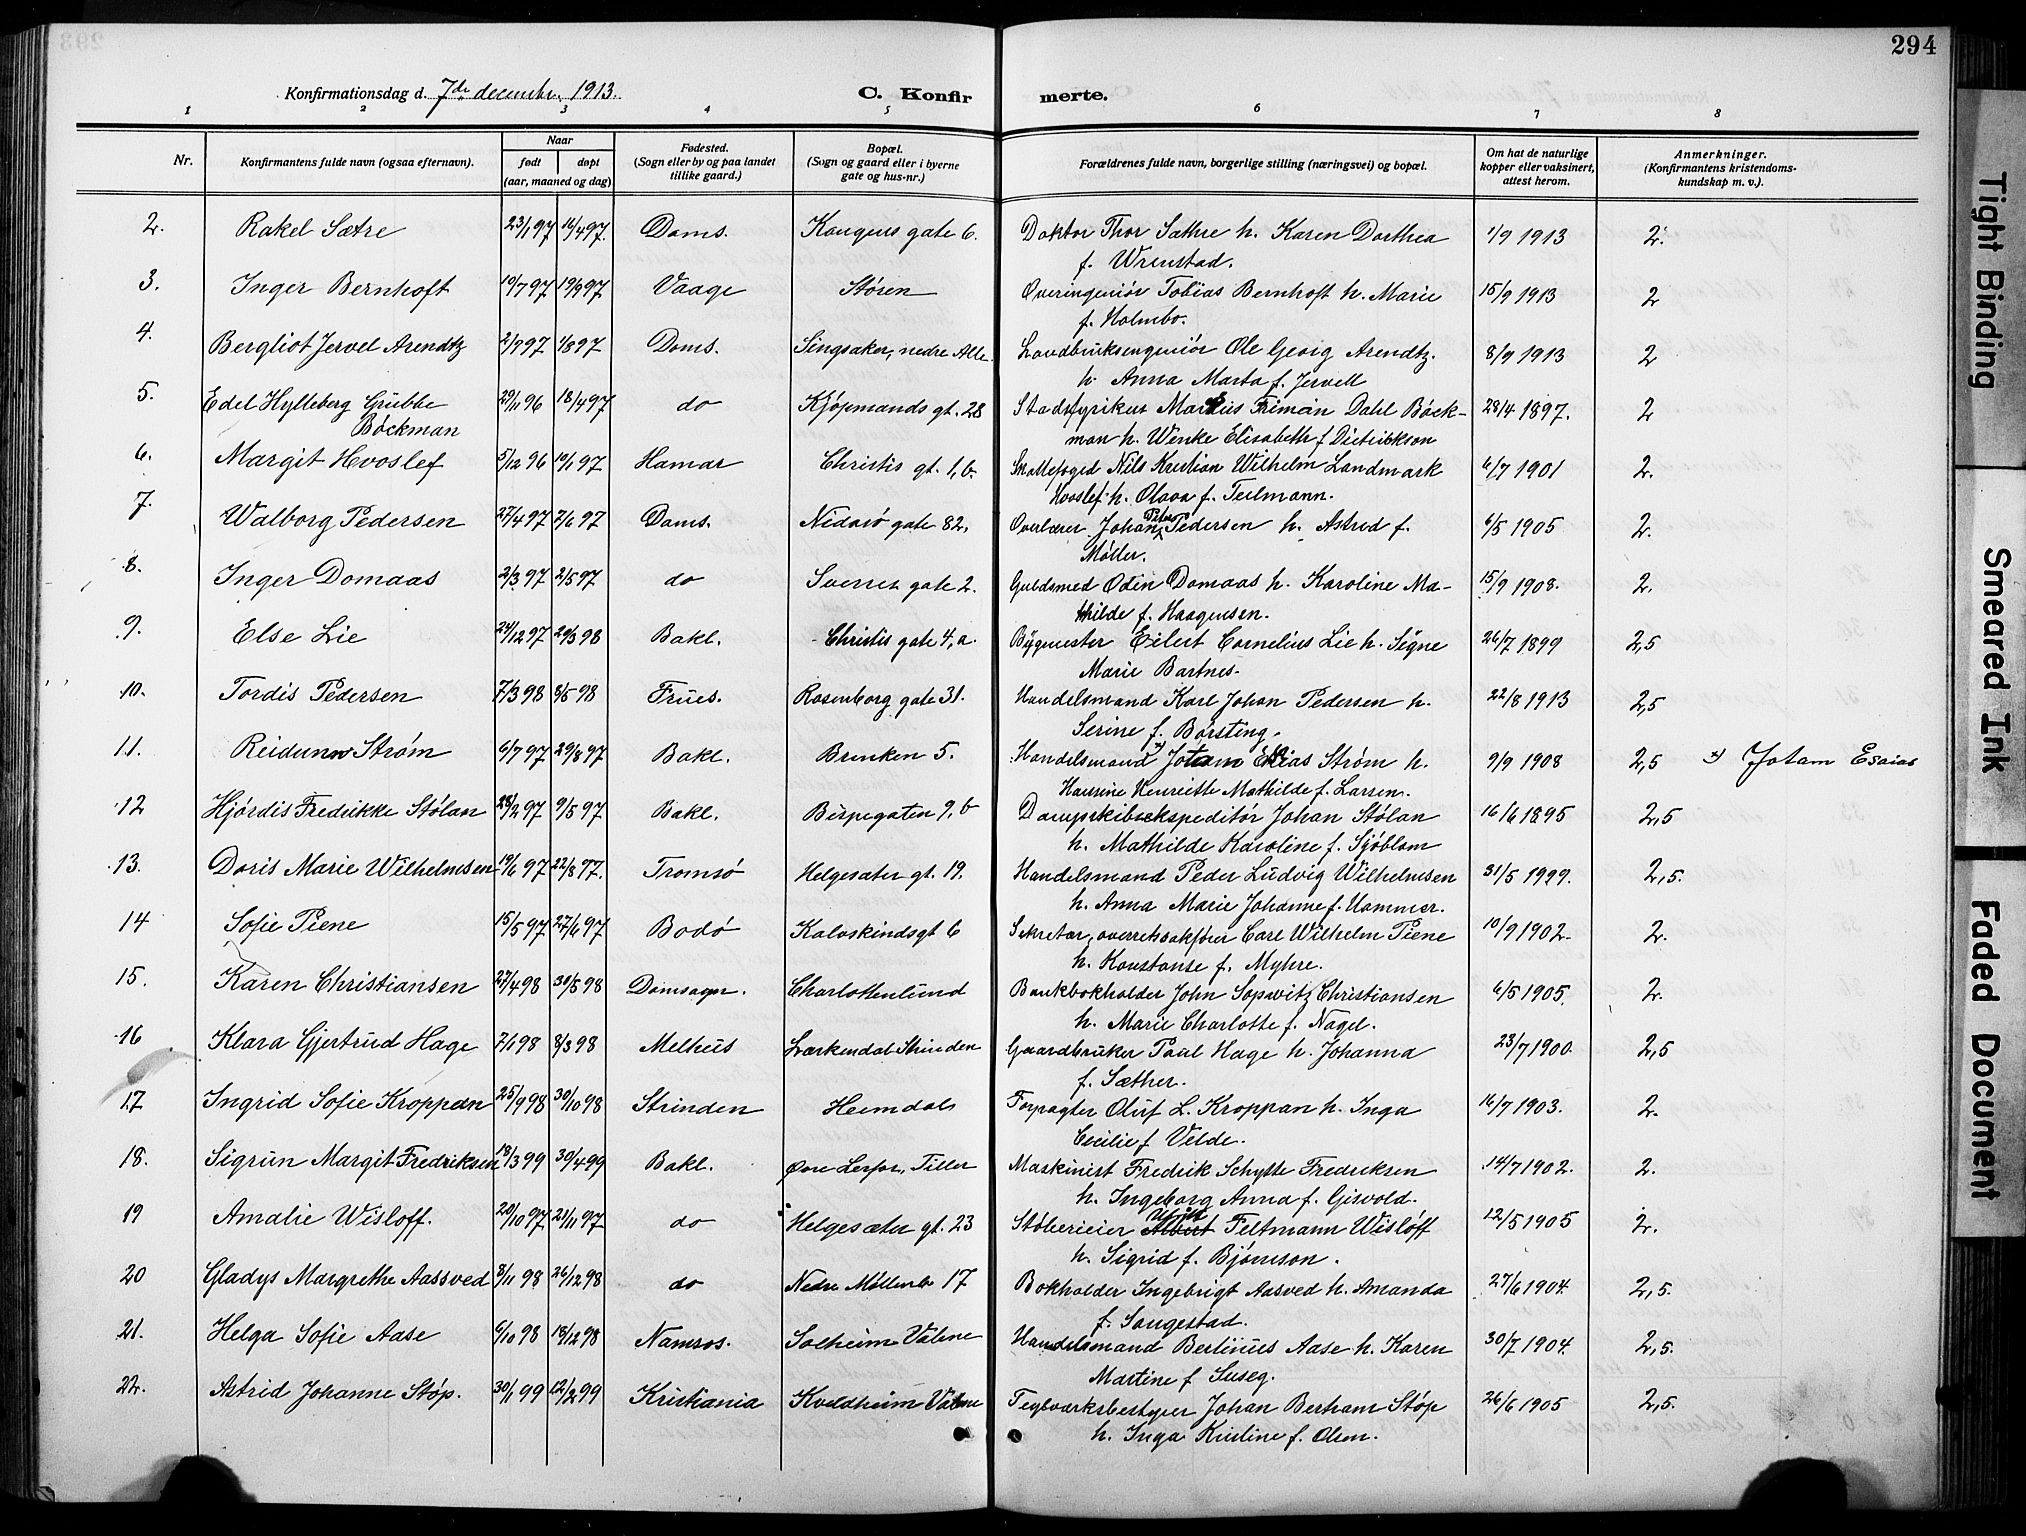 294
Konfirmationsdag d. 7de decembr. 1913.
C. Konfirmerte.
1 2 3 4 5 6 7 8
Nr. Konfirmantens fulde navn (ogsaa efternavn). Naar født døpt (aar, maaned og dag) Fødested. (Sogn eller by og paa landet tillike gaard.) Bopæl. (Sogn og gaard eller i byerne gate og hus-nr.) Forældrenes fulde navn, borgerlige stilling (næringsvei) og bopæl. Om hat de naturlige kopper eller vaksinert, attest herom. Anmerkninger. (Konfirmantens kristendomskundskap m. v.).
2. Rakel Sætre 23/1 97 16/4 97. Doms. Kongens gate 6. Doktor Thor Sæthre h. Karen Dorthea 1/9 1913 2.
f. Wrenstad.
3. Inger Bernhoft 19/7 97 19/9 97 Vaage Støren Overingeniør Tobias Bernhoft h. Marie 15/9 1913 2
f. Holmbo.
4. Bergliot Jervel Arendtz 2/7 97 1/8 97 Doms. Singsaker, nedre Alle Landbruksengeniør Ole Georg Arendtz. 8/9 1913 2
h. Anna Marta f. Jervell
5. Edel Hylleberg Grubbe 29/11 96 18/4 97 do Kjøpmands gt. 28 Stadsfysikus Marius Friman Dahl Böck- 28/4 1897. 2
Böckman man h. Wenke Elisabeth f. Dietrikson
6. Margit Hvoslef 5/12 96 10/1 97 Hamar Christis gt. 1, b. Skattefoged Nils Kristian Wilhelm Landmark 6/7 1901 2.
Hvoslef. h. Olava f. Teilmann.
7. Walborg Pedersen 27/4 97 7/6 97 Doms. Nidarø gate 82. Overlærer Johan Peter Pedersen h. Astrid f. 6/5 1905 2.
Møller.
8. Inger Domaas 2/3 97 2/5 97 do Sverres gate 2. Guldsmed Odin Domaas h. Karoline Ma- 15/9 1908. 2.
thilde f. Haagensen.
9. Else Lie 24/12 97 20/3 98 Bakl. Christis gate 4, a. Bygmester Eilert Cornelius Lie h. Signe 26/7 1899 2,5
Marie Bartnes.
10. Tordis Pedersen 7/3 98 8/5 98 Frues. Rosenborg gate 31. Handelsmand Karl Johan Pedersen h. 22/8 1913 2,5
Serine f. Børsting.
11. Reidunn Strøm 6/7 97 29/8 97 Bakl. Brinken 5. Handelsmand x) Jotam Esias Strøm h. 9/9 1908 2,5 x) Jotam Esaias
Hansine Henriette Mathilde f. Larsen.
12 Hjørdis Fredrikke Stølan 28/2 97 9/5 97 Bakl. Bispegaten 9, b Dampskibsekspeditør Johan Stølan 16/6 1895 2,5
h. Mathilde Karoline f. Sjöblom
13. Doris Marie Wilhelmsen 19/6 97 22/8 97. Tromsø Helgesæter gt. 19. Handelsmand Peder Ludvig Wilhelmsen 31/5 1929. 2,5.
h. Anna Marie Johanne f. Hammer.
14 Sofie Piene 15/5 97 27/6 97 Bodø Kalvskindsgt 6 Sekretær, overretssakfører Carl Wilhelm Piene 10/9 1902. 2.
h. Konstanse f. Myhre.
15. Karen Christiansen 27/4 98 30/5 98 Domsogn. Charlottenlund Bankbokholder John Sopwitz Christiansen 6/5 1905. 2.
h. Marie Charlotte f. Nagel.
16 Klara Gjertrud Hage 7/1 98 8/3 98 Melhus Lærkendal Strinden Gaardbruker Paul Hage h. Johanna 23/7 1900. 2,5
f. Sæther.
17 Ingrid Sofie Kroppan 25/9 98 30/10 98 Strinden Heimdal Forpagter Oluf L. Kroppan h. Inga 16/7 1903. 2.
Cecilie f. Velde.
18. Sigrun Margit Fredriksen 18/3 99 30/4 99 Bakl. Øvre Lerfos, Tiller Maskinist Fredrik Schytte Fredriksen 14/7 1902. 2.
h. Ingeborg Anna f. Gisvold.
19 Amalie Wisløff. 20/10 97 21/11 97 do Helgesæter gt. 23 Støberieier Feltmann Wisløff 12/5 1905 2.
h. Sigrid f. Bjørnson.
20 Gladys Margrethe Aassved 8/11 98 26/12 98 do Nedre Møllenb. 17 Bokholder Ingebrigt Aasved h. Amanda 27/6 1904. 2,5.
f. Saugestad.
21. Helga Sofie Aase 6/10 98 18/12 98 Namsos. Solheim Valene Handelsmand Bertinius Aase h. Karen 30/7 1904. 2,5.
Martine f. Suseg.
22. Astrid Johanne Støp. 30/1 99 12/2 99 Kristiania Kveldheim Valene Teglværksbestyrer Johan Berham Støp 26/6 1905 2,5.
h. Inga Kristine f. Olsen.
Tight Binding
Smeared Ink
Faded Document